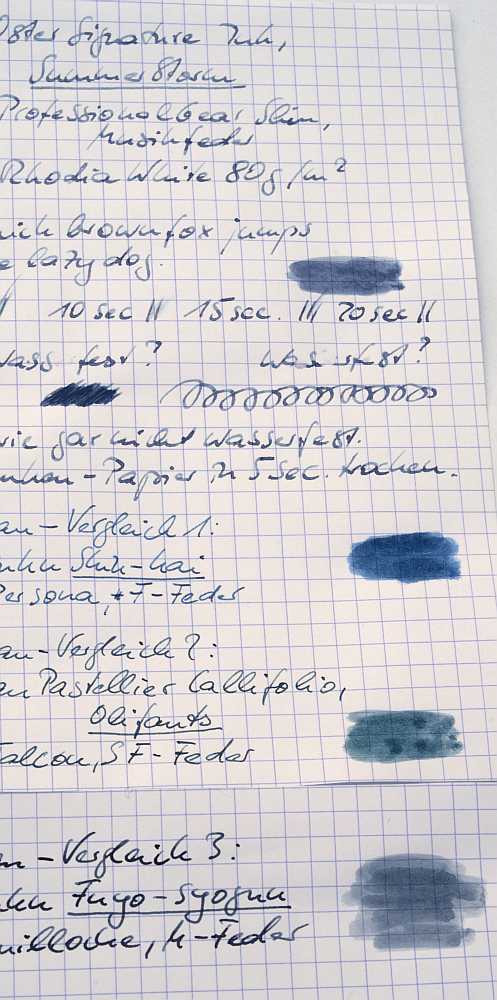 ster Signature Ink,
Summer Storm
Professional Gear Slim,
Musikfeder
Rhodia White 80g/m²
ick brown fox jumps
e lazy dog.
// 10 sec // 15 sec. /// 20 sec //
wass fest? wasserfest?
wie gar nicht wasserfest.
-Papier in 5 Sec. trocken.
au-Vergleich 1:
Shin-kai
Persona, F-Feder
au-Vergleich 2:
Pastellier Callifolio,
Olifants
Falcon, SF-Feder
-Vergleich 3:
Fuyo-Syogun
uilloche, M-Feder